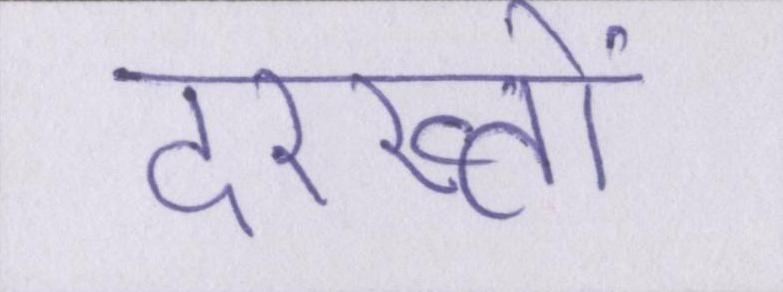 दरख्तों